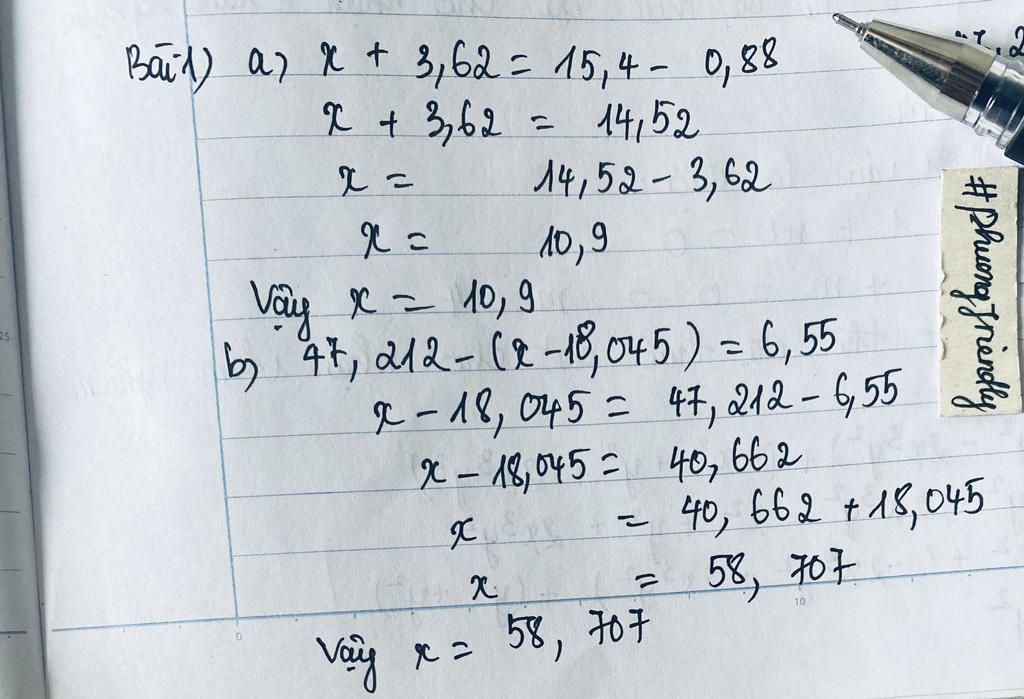 Bài 1) a) x + 3,62 = 15,4 - 0,88
x + 3,62 = 14,52
x = 14,52 - 3,62
x = 10,9
Vậy x = 10,9
b) 47,212 - (x - 18,045) = 6,55
x - 18,045 = 47,212 - 6,55
x - 18,045 = 40,662
x = 40,662 + 18,045
x = 58,707
Vậy x = 58,707
#Phuongfriendly
25
0
10